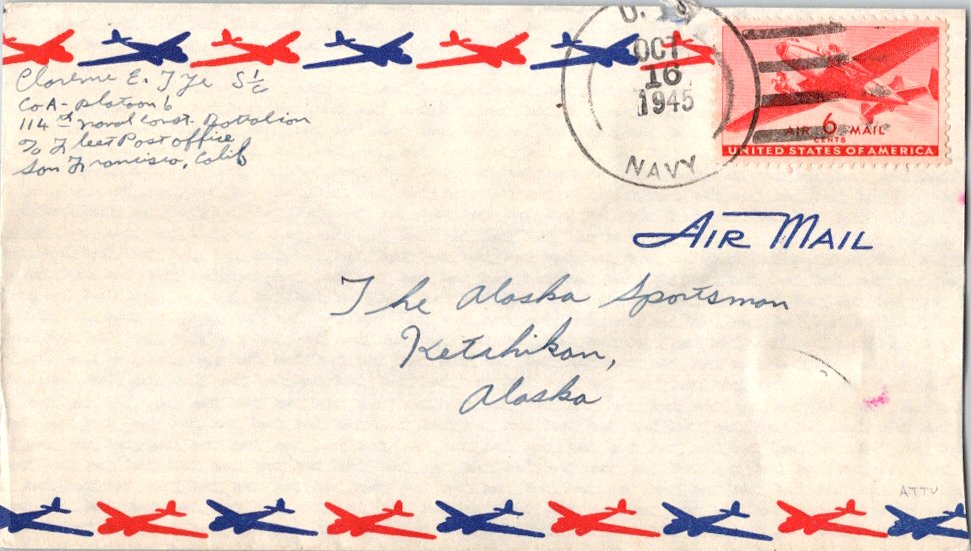 E. Tye S 1/c
Co A - Platoon 6
114th Naval Const. Battalion
℅ Fleet Post office
San Francisco, Calif
U. S.
OCT
16
1945
NAVY
AIR 6 MAIL
CENTS
UNITED STATES OF AMERICA
AIR MAIL
The Alaska Sportsman
Ketchikan,
Alaska
ATTU